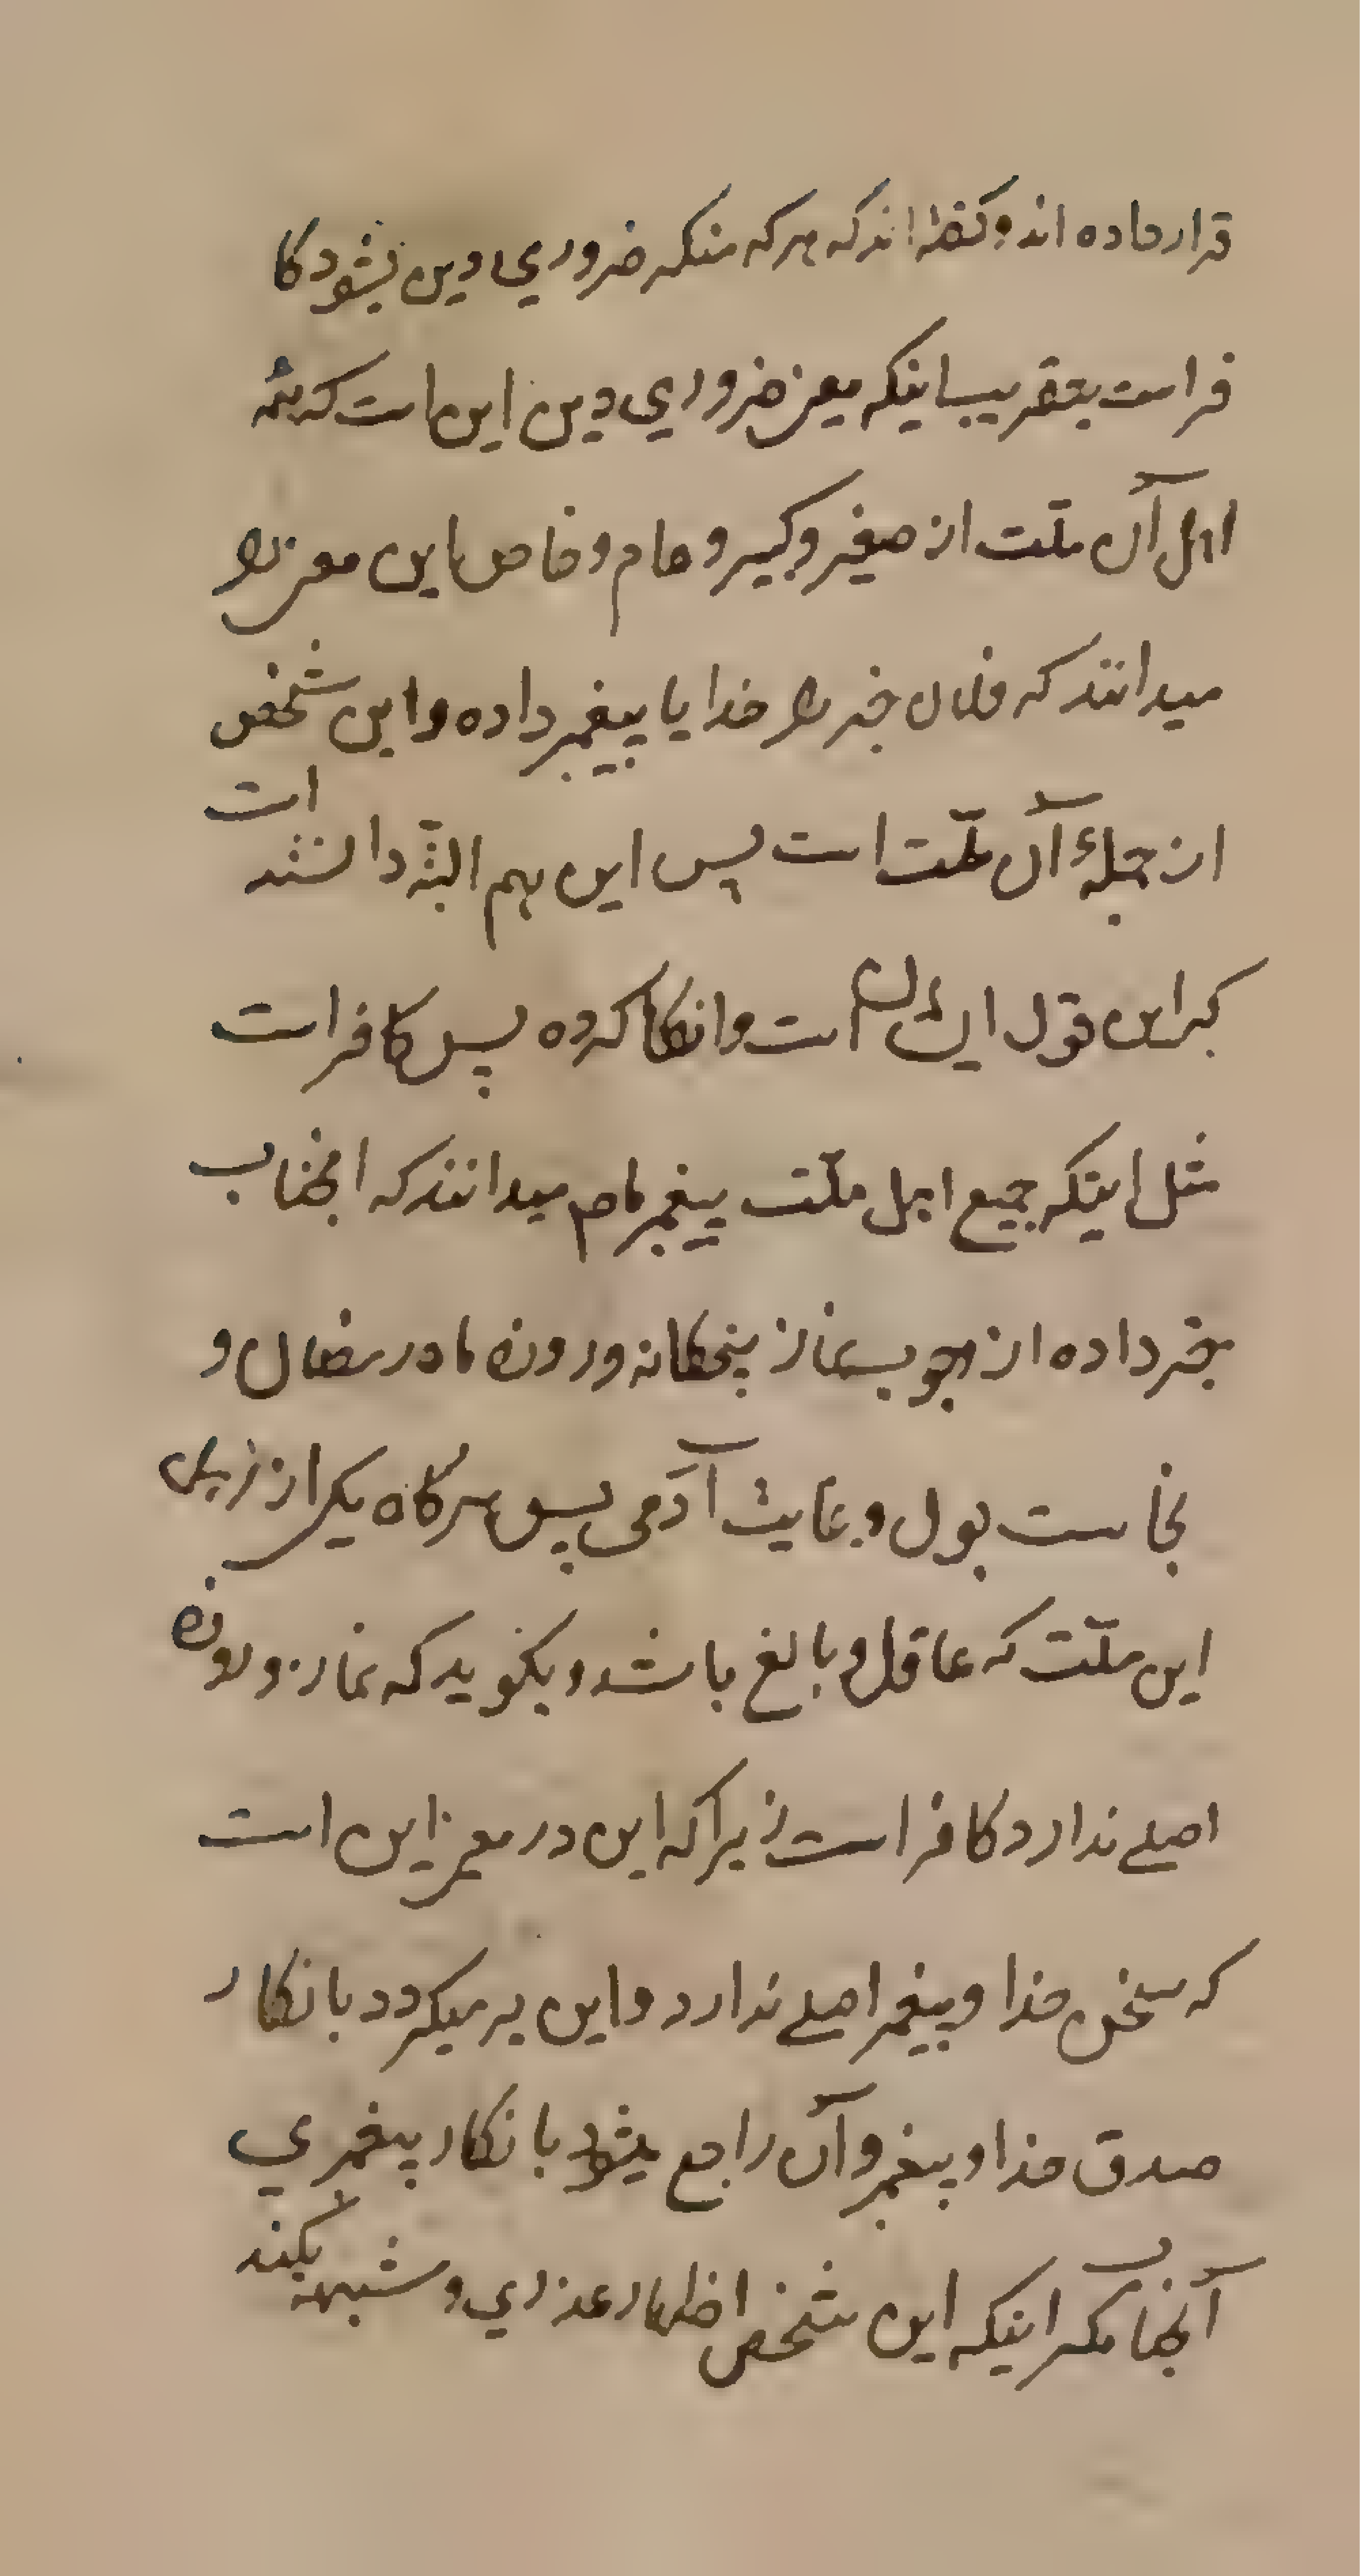 قرار داده اند و گفته اند که هر که منکر ضروري دین بشود کا
فر است بتقریب اینکه معنی ضروري دین این است که همه
اهل آن ملّت از صغیر و کبیر و عام و خاص این معنی را
میدانند که فلان خبر را خدا یا پیغمبر داده و این شخص
از جملهٔ آن ملّت است پس این هم البتّه دانسته است
که این قول ایشان است و انکار کرده پس کافر است
مثل اینکه جمیع اهل ملّت پیغمبر ما میدانند که انجناب
خبر داده از وجوب نماز پنجگانه و روزه ماه رمضان و
نجاست بول و غایت آدمی پس هرگاه یکی از اهل
این ملّت که عاقل و بالغ باشد و بگوید که نماز و روزه
اصلے ندارد کافر است زیرا که این در معنی این است
که سخن خدا و پیغمبر اصلے ندارد و این بر میگردد بانکار
صدق خدا و پیغمبر و آن راجع میشود بانکار پیغمبري
آنجناب مگر اینکه این شخص اظهار عذري و شبهه بکند